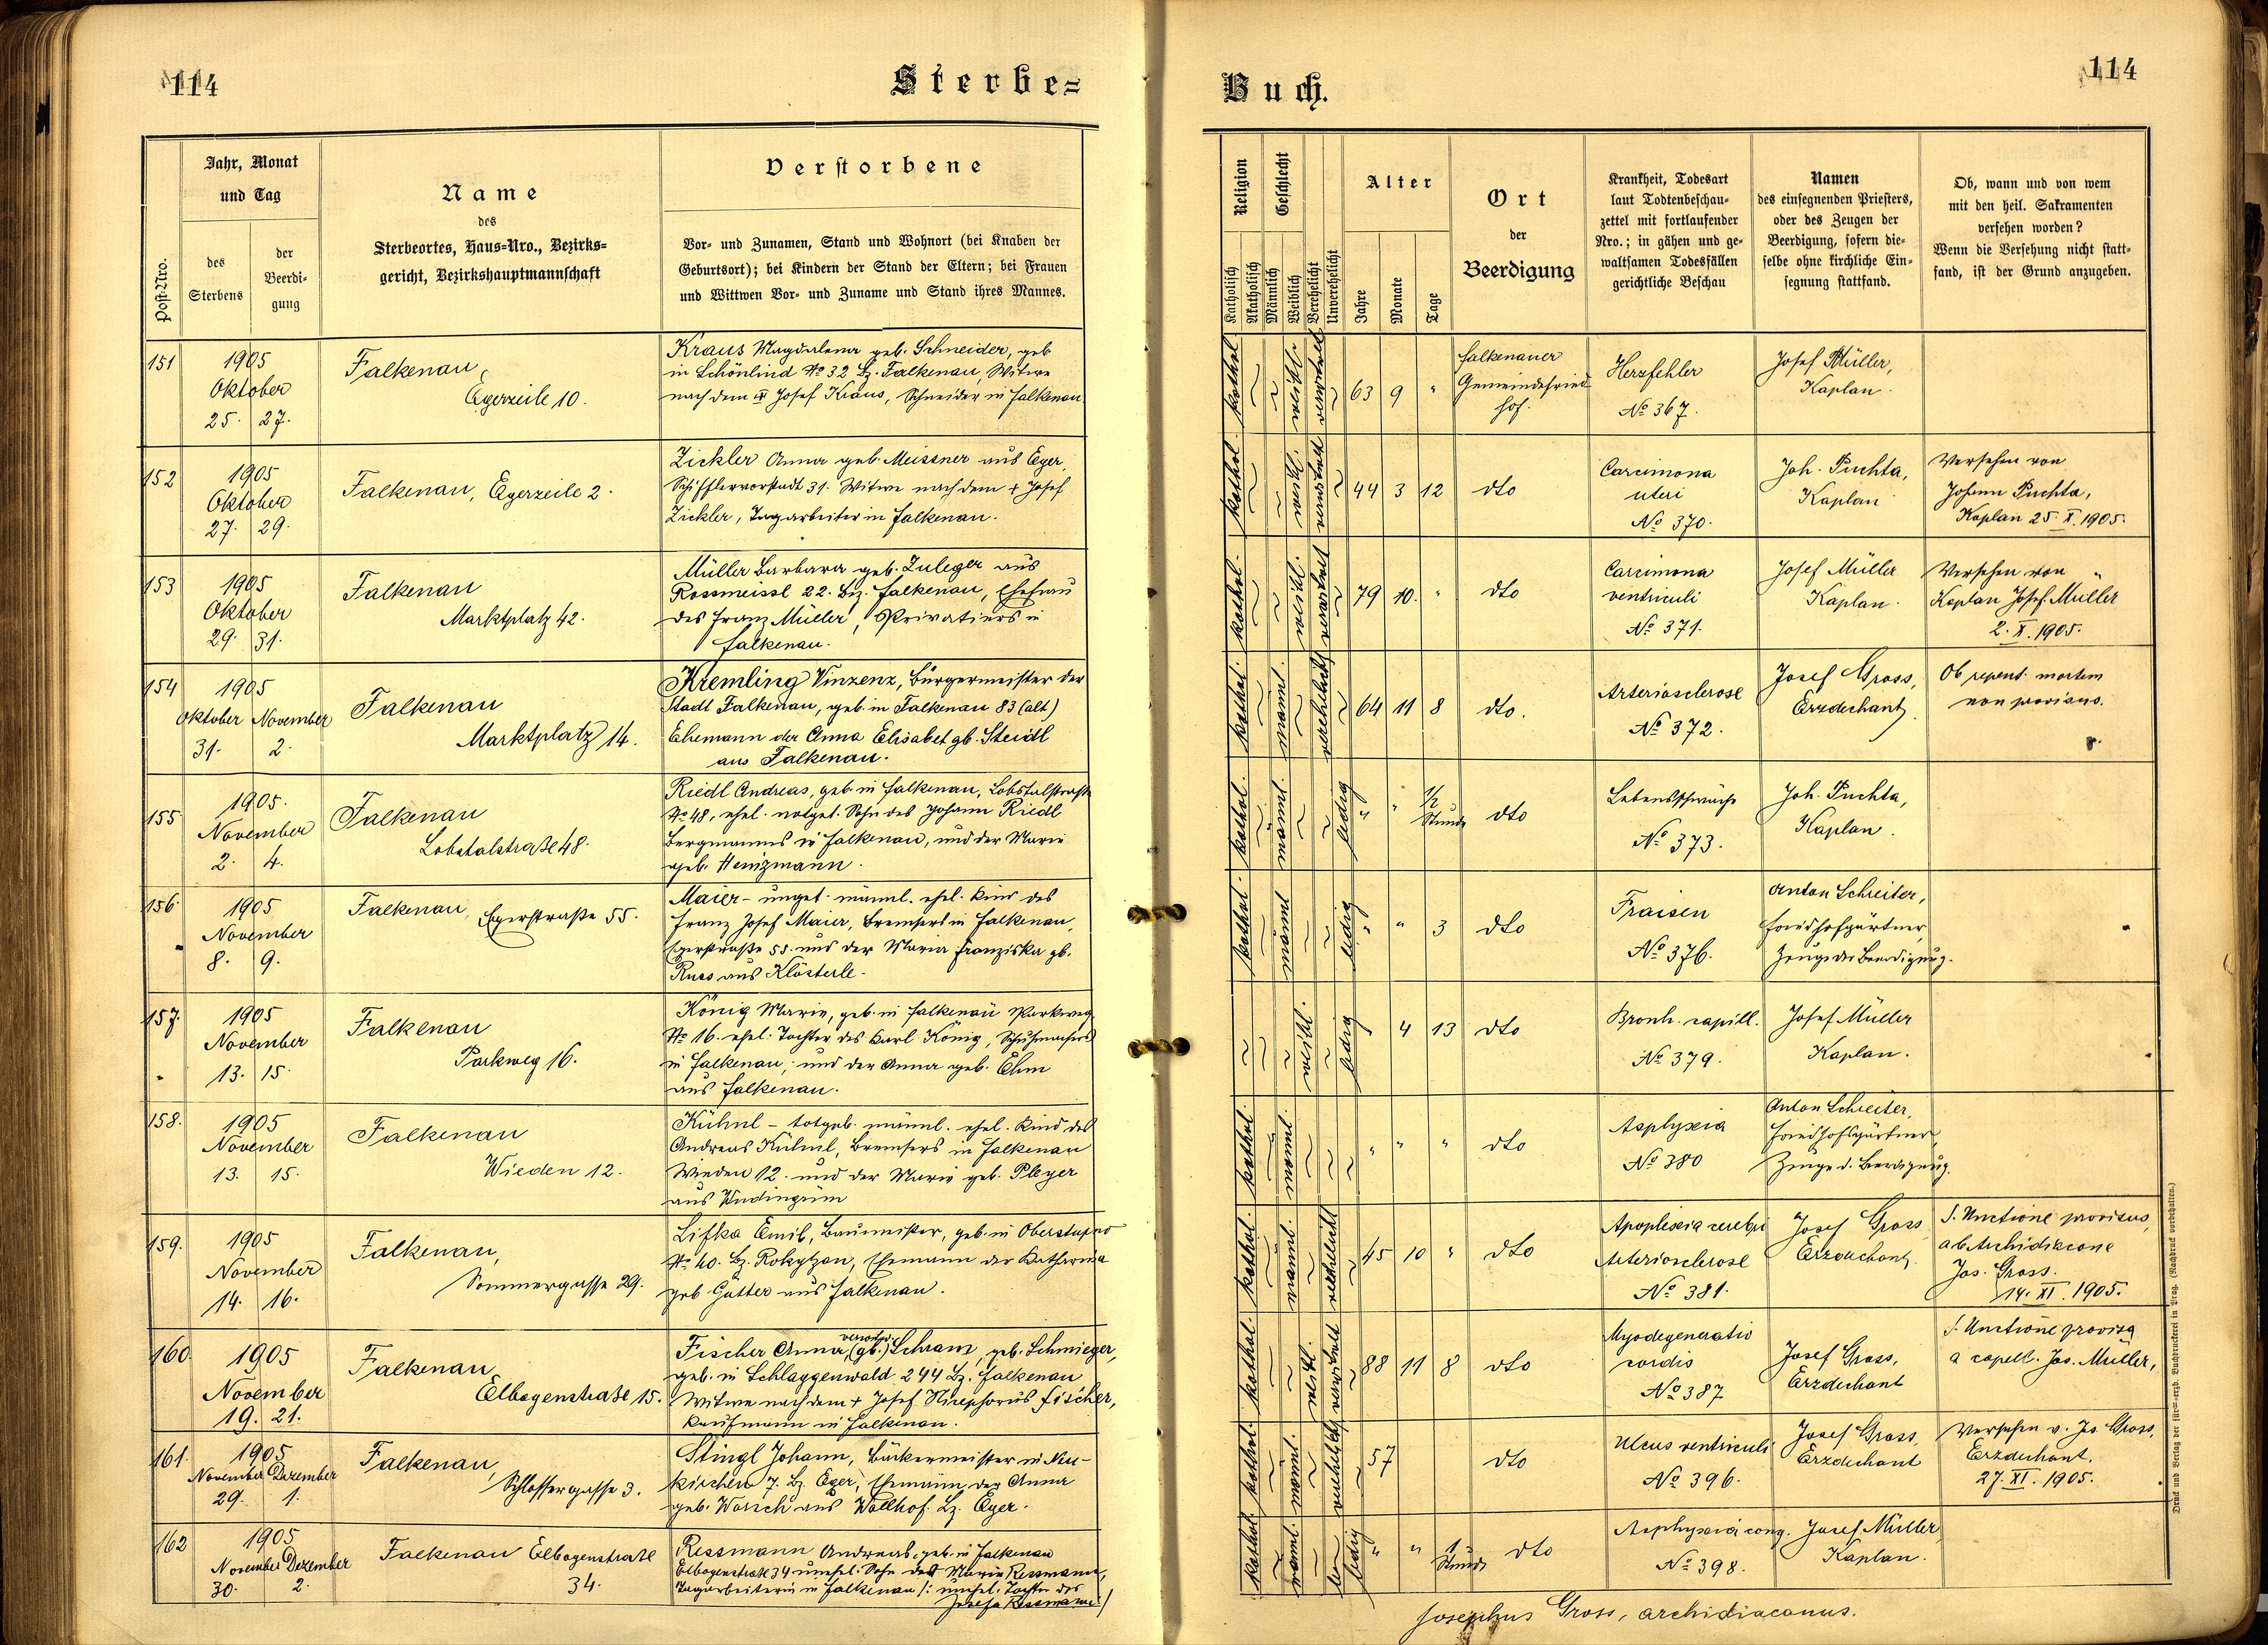 114
Sterbe=
Jahr, Monat
und Tag
des
Sterbens
der
Beerdi-
gung
Post-Nro.
Name
des
Sterbeortes, Haus-Nro., Bezirks-
gericht, Bezirkshauptmannschaft
Verstorbene
Vor- und Zunamen, Stand und Wohnort (bei Knaben der
Geburtsort); bei Kindern der Stand der Eltern; bei Frauen
und Wittwen Vor- und Zuname und Stand ihres Mannes.
151
1905
Oktober
25. 27.
Falkenau,
Egerzeile 10.
Kraus Magdalena geb. Schneider, geb
in Schönlind No 32 Bz. Falkenau, Witwe
nach dem Josef Kraus, Schneider in Falkenau
152
1905
Oktober
27. 29.
Falkenau, Egerzeile 2.
Zickler Anna geb. Meissner aus Eger,
Schifflervorstadt 31. Witwe nach dem + Josef
Zickler, Tagarbeiter in Falkenau.
153
1905
Oktober
29. 31.
Falkenau
Marktplatz 42.
Müller Barbara geb. Zuleger aus
Rossmeissl 22. Bz. Falkenau, Ehefrau
des Franz Müller, Privatiers in
Falkenau.
154
1905
Oktober November
31. 2.
Falkenau
Marktplatz 14.
Kremling Vinzenz, Bürgermeister der
Stadt Falkenau, geb. in Falkenau 83 (alt)
Ehemann der Anna Elisabet gb. Steidl
aus Falkenau.
155
1905.
November
2. 4.
Falkenau
Lobstalstraße 48.
Riedl Andreas, geb. in Falkenau, Lobstalstraße
No 48, ehel. notget. Sohn des Johann Riedl
Bergmanns in Falkenau, und der Marie
geb. Heinzmann.
156
1905
November
8. 9.
Falkenau, Egerstraße 55.
Maier - unget. männl. ehel. Kind des
Franz Josef Maier, Bremsers in Falkenau,
Egerstraße 55. und der Maria Franziska gb.
Russ aus Klösterle.
157.
1905
November
13. 15.
Falkenau
Parkweg 16.
König Marie, geb. in Falkenau Parkweg
No 16. ehel. Tochter des Karl König, Schuhmachers
in Falkenau, und der Anna geb. Ehm
aus Falkenau.
158.
1905
November
13. 15.
Falkenau
Wieden 12.
Kühnl - totgeb. männl. ehel. Kind des
Andreas Kühnl, Bremsers in Falkenau
Wieden 12. und der Marie geb. Pleyer
aus
159.
1905
November
14. 16.
Falkenau,
Sommergasse 29.
Lifka Emil, Baumeister, geb. in Oberstupno
No 40. Bz. Rokytzan, Ehemann der Katharina
geb Gütter aus Falkenau.
160
1905
November
19. 21.
Falkenau
Elbogenstraße 15.
Fischer Anna, (gb.) Schram, geb. Schmieger,
geb. in Schlaggenwald 244 Bz. Falkenau
Witwe nach dem + Josef Nicephorus Fischer,
Kaufmann in Falkenau.
161.
1905
November Dezember
29. 1.
Falkenau,
Schlossergasse 3.
Stingl Johann, Bäckermeister in Neu-
kirchen 7. Bz. Eger, Ehemann der Anna
geb. Worsch aus Wallhof. Bz. Eger.
162
1905
November Dezember
30. 2.
Falkenau Elbogenstraße
34.
Ressmann Andreas, geb. in Falkenau
Elbogenstraße 34 unehel. Sohn der Marie Ressmann,
Tagarbeiterin in Falkenau /: unehel. Tochter der
Josefa Ressmann /
Buch.
114
Religion
Katholisch
Akatholisch
Geschlecht
Männlich
Weiblich
Verehelicht
Unverehelicht
Alter
Jahre
Monate
Tage
Ort
der
Beerdigung
Krankheit, Todesart
laut Todtenbeschau-
zettel mit fortlaufender
Nro.; in gähen und ge-
waltsamen Todesfällen
gerichtliche Beschau
Namen
des einsegnenden Priesters,
oder des Zeugen der
Beerdigung, sofern die-
selbe ohne kirchliche Ein-
segnung stattfand.
Ob, wann und von wem
mit den heil. Sakramenten
versehen worden?
Wenn die Versehung nicht statt-
fand, ist der Grund anzugeben.
kathol. weibl. verwitwet 63 9 "
Falkenauer
Gemeindefried
hof.
Herzfehler
No 367.
Josef Müller,
Kaplan.
kathol. weibl. verwitwet 44 3 12 dto
Carcimona
uteri
No 370.
Joh. Puchta,
Kaplan
Versehen von
Johann Puchta,
Kaplan 25. X. 1905.
kathol. weibl. 79 10. " dto
Carcimona
ventriculi
No 371.
Josef Müller
Kaplan.
Versehen von
Kaplan Josef Müller
2. X. 1905.
kathol. männl. verehelicht 64 11 8 dto.
Arteriosclerose
No 372.
Josef Gross,
Erzdechant.
Ob repent. mortem
non provisus.
kathol. männl. ledig " " 1/2
Stunde
dto
Lebensschwäche
No 373.
Joh. Puchta,
Kaplan.
kathol. männl. ledig " " 3 dto
Fraisen
No 376.
Anton Schreiter,
Friedhofgärtner
Zeuge der Beerdigung.
weibl. ledig " 4 13 dto
Bronh. capill.
No 379.
Josef Müller
Kaplan.
kathol. männl. " " " dto
Asphyxia
No 380
Anton Schreiter,
Friedhofsgärtner,
Zeuge d. Beerdigung.
kathol. männl. verehelicht 45 10 " dto
Apoplexia cerebri
Arteriosclerose
No 381.
Josef Gross,
Erzdechant.
S. Unctione provisus,
ab Archidiacone
Jos. Gross.
14. XI. 1905.
kathol. weibl. verwitwet 88 11 8 dto
Myodegeneratio
cordis
No 387
Josef Gross,
Erzdechant
S. Unctione provisa
a capell. Jos. Müller,
kathol. männl. verehelicht 57 dto
Ulcus ventriculi
No 396.
Josef Gross,
Erzdechant
Versehen v. Jos Gross,
Erzdechant.
27. XI. 1905.
kathol. männl. ledig " " 1
Stunde
dto
Asphyxia cong.
No 398.
Josef Müller,
Kaplan.
Josephus Gross, archidiaconus.
Druck und Verlag der fürst-erzb. Buchdruckerei in Prag. (Nachdruck vorbehalten.)